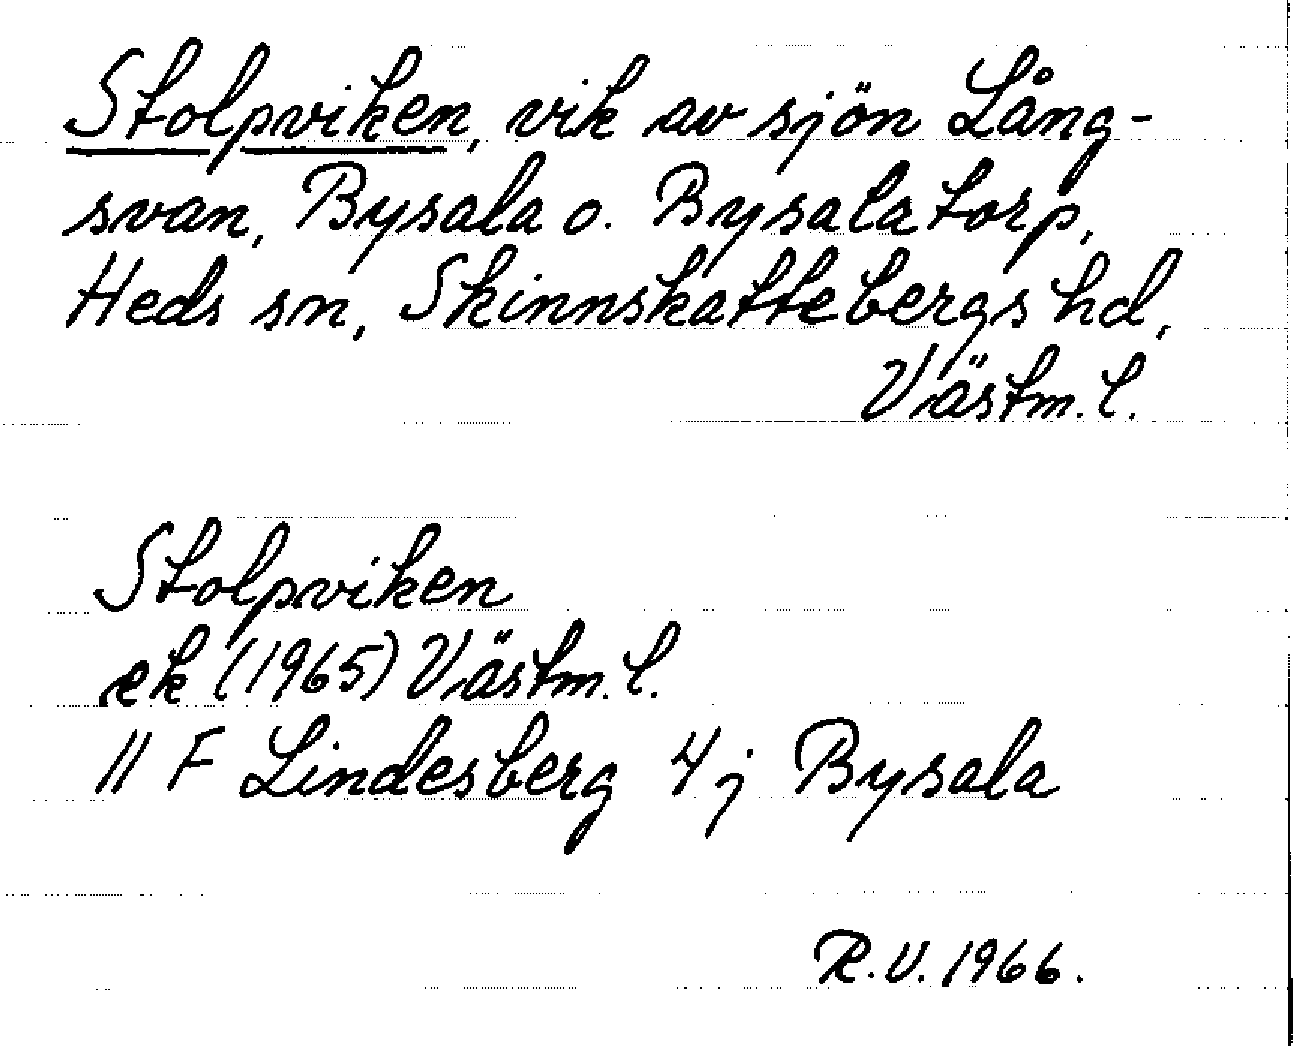 Stolpviken, vik av sjön Lång-
svan, Bysala o. Bysalatorp,
Heds sn, Skinnskattebergs hd,
Västm. l.
Stolpviken
ek (1965) Västm. l.
11 F Lindesberg 4 j Bysala
R.V. 1966.